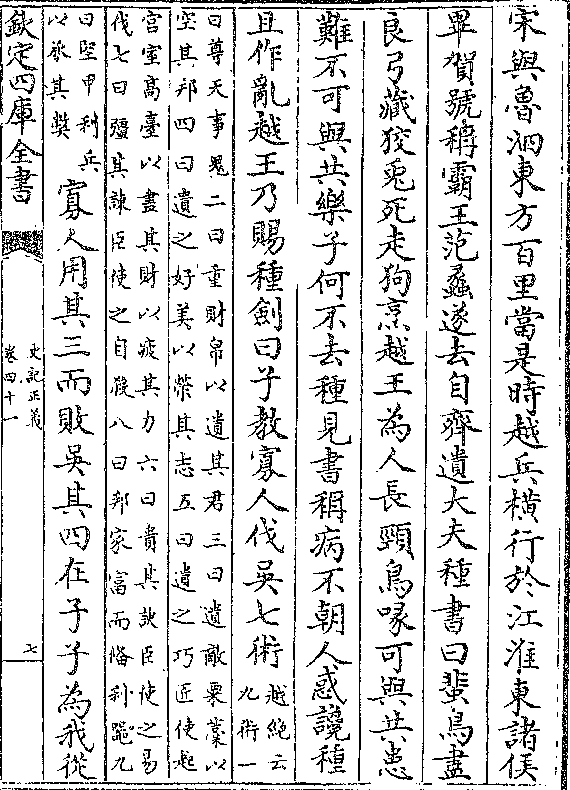 宋與魯泗東方百里當是時越兵橫行於江淮東諸侯
畢賀號稱霸王范蠡遂去自齊遺大夫種書曰蜚鳥盡
良弓藏狡兎死走狗烹越王為人長頸鳥喙可與共患
難不可與共樂子何不去種見書稱病不朝人惑讒種
且作亂越王乃賜種劍曰子教寡人伐吳七術
越絶云
九術一
曰尊天事鬼二曰重財帛以遺其君三曰遺敵粟藁以
空其邦四曰遺之好美以榮其志五曰遺之巧匠使起
宮室高臺以盡其財以疲其力六曰貴其諛臣使之易
伐七曰彊其諫臣使之自殺八曰邦家富而備利器九
曰堅甲利兵
以承其弊
寡人用其三而敗吳其四在子子為我從
欽定四庫全書
史記正義
卷四十一
七